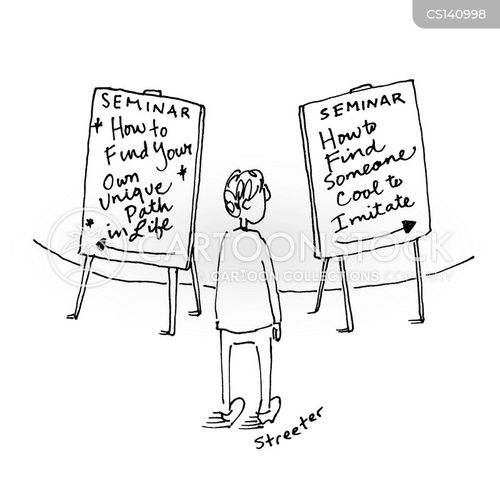 CS140998
SEMINAR
* How to
Find Your
Own *
Unique
* Path
in Life
SEMINAR
How to
Find
Someone
Cool to
Imitate
CARTOONSTOCK
CARTOON COLLECTIONS COMPANY
Streeter